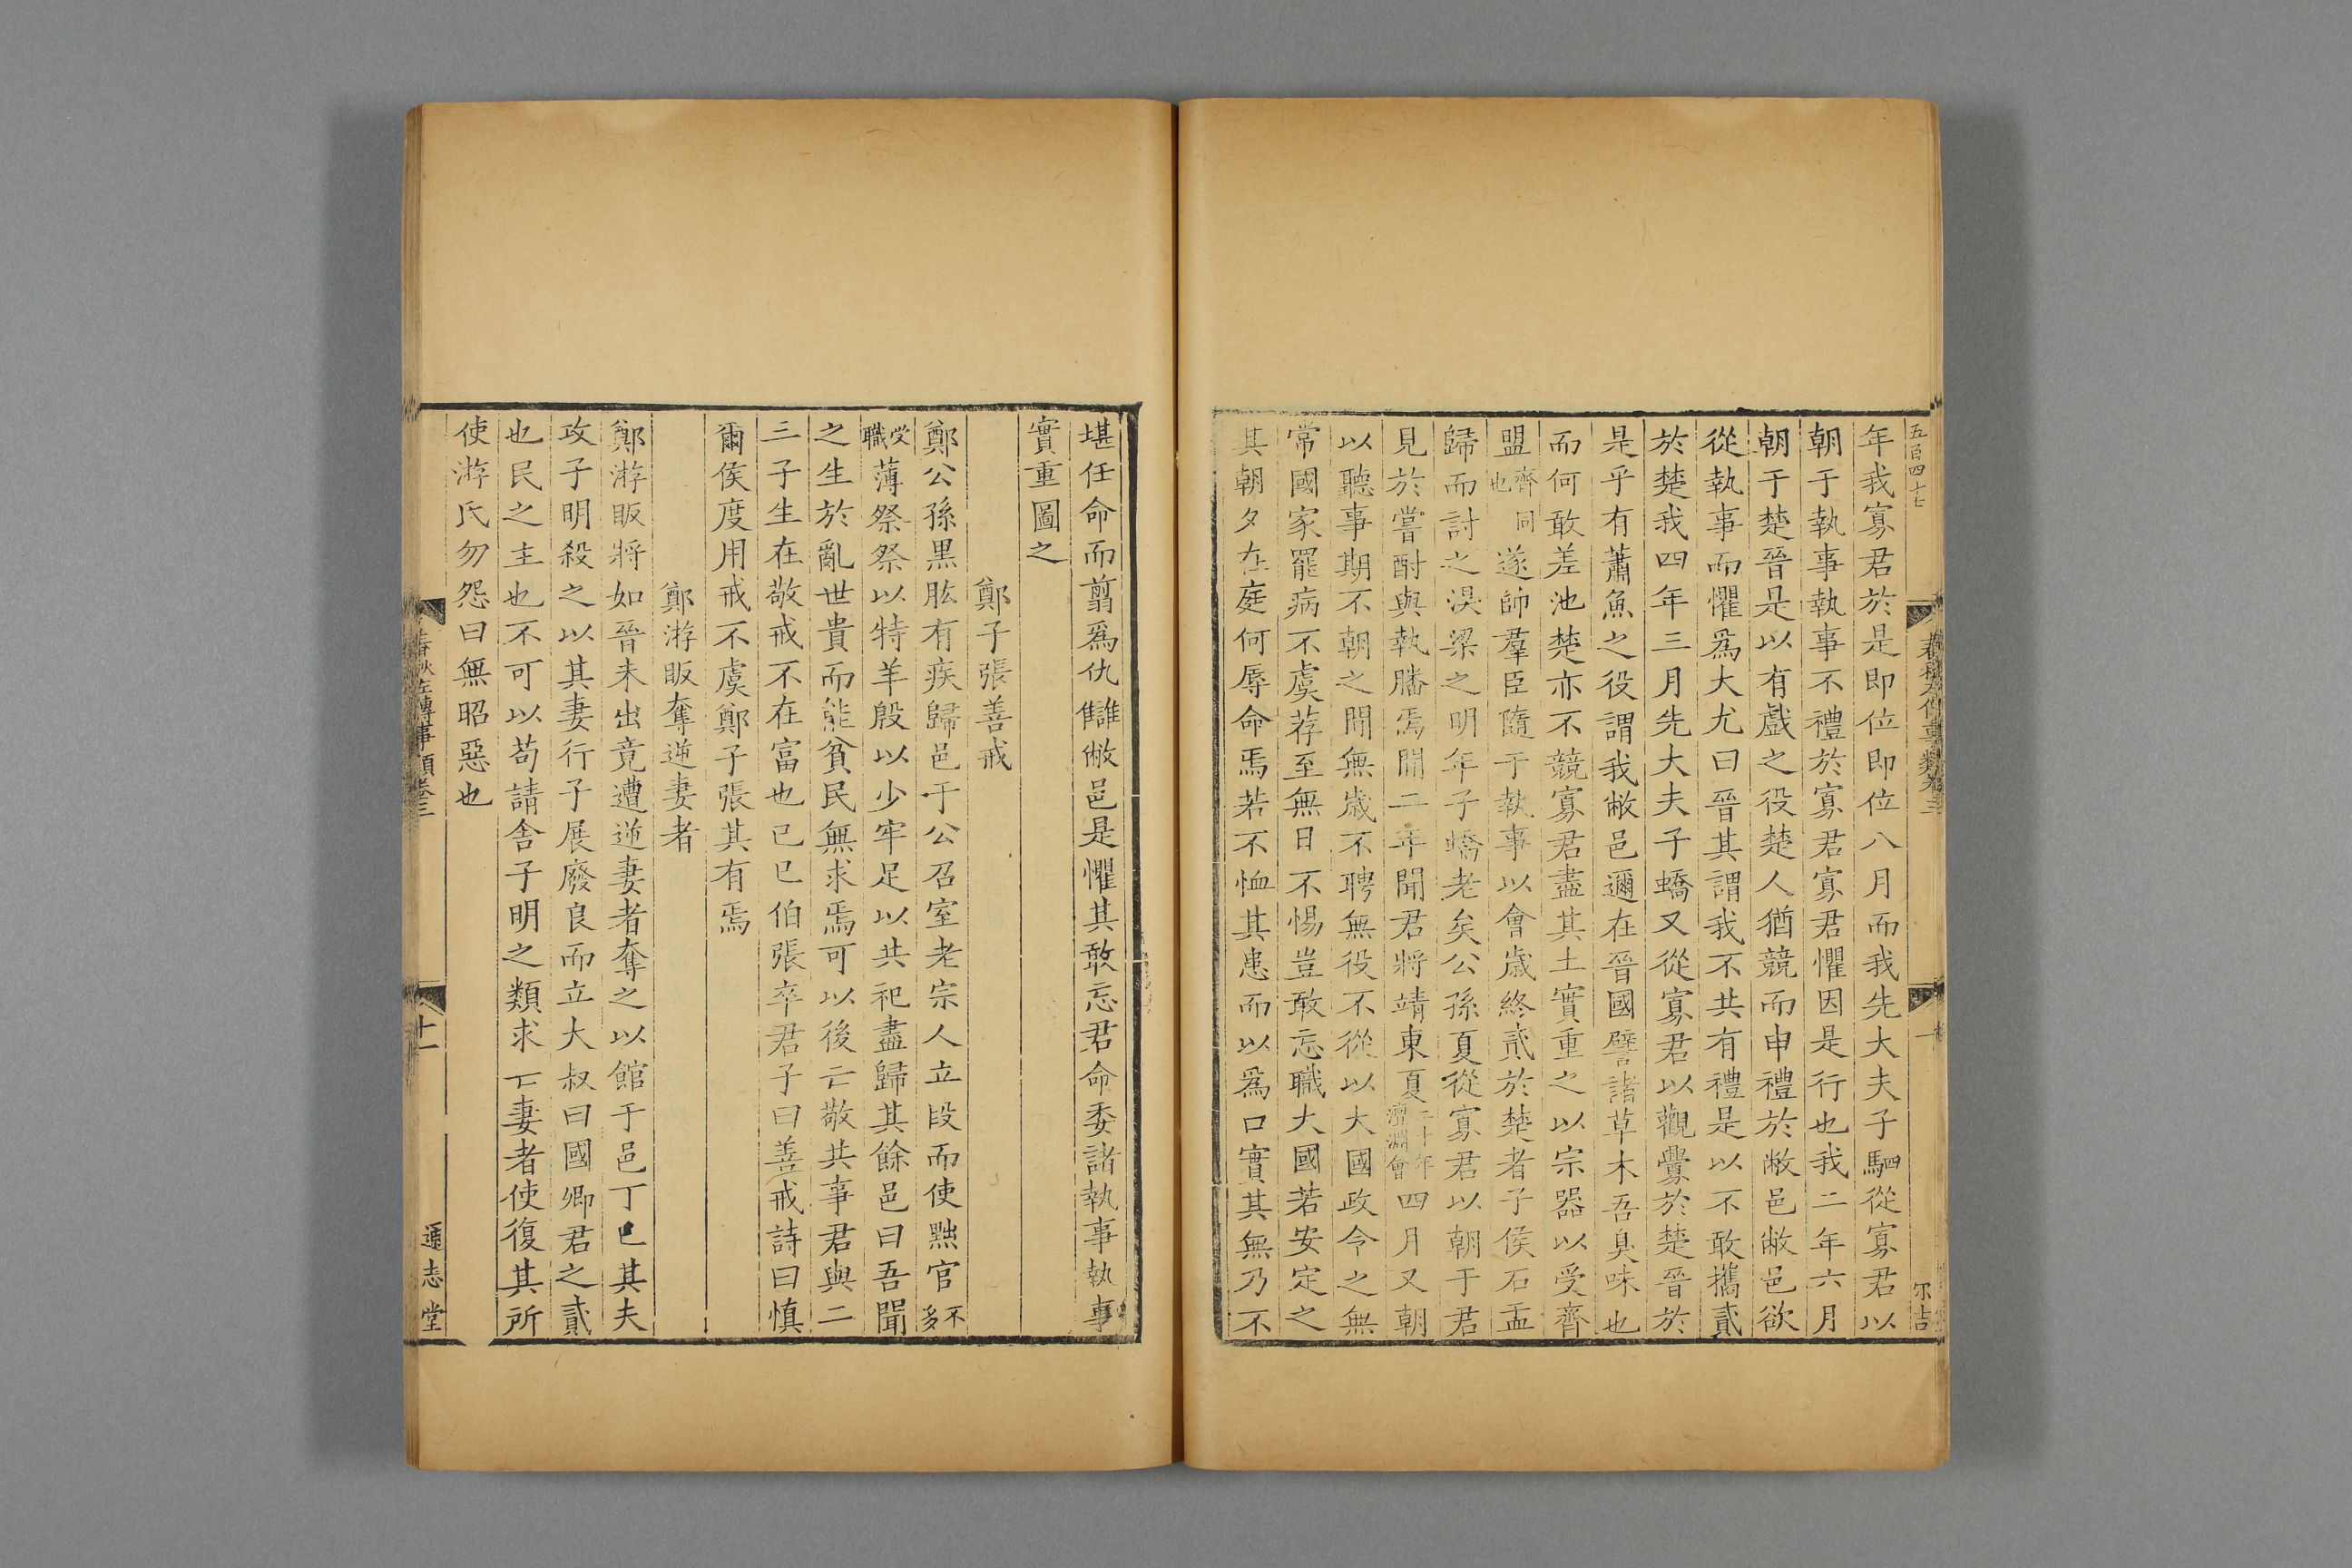 五百四十七
春秋左傳事類卷三
尔吉
年我寡君於是即位即位八月而我先大夫子駟從寡君以
朝于執事執事不禮於寡君寡君懼因是行也我二年六月
朝于楚晉是以有戲之役楚人猶競而申禮於敝邑敝邑欲
從執事而懼爲大尤曰晉其謂我不共有禮是以不敢攜貳
於楚我四年三月先大夫子蟜又從寡君以觀釁於楚晉於
是乎有蕭魚之役謂我敝邑邇在晉國譬諸草木吾臭味也
而何敢差池楚亦不競寡君盡其土實重之以宗器以受齊
盟齊同也遂帥羣臣隨于執事以會歲終貳於楚者子侯石盂
歸而討之湨梁之明年子蟜老矣公孫夏從寡君以朝于君
見於嘗酎與執膰焉間二年聞君將靖東夏二十年澶淵會四月又朝
以聽事期不朝之間無歲不聘無役不從以大國政令之無
常國家罷病不虞荐至無日不惕豈敢忘職大國若安定之
其朝夕在庭何辱命焉若不恤其患而以爲口實其無乃不
堪任命而翦爲仇讎敝邑是懼其敢忘君命委諸執事執事
實重圖之
鄭子張善戒
鄭公孫黑肱有疾歸邑于公召室老宗人立段而使黜官不多
受職薄祭祭以特羊殷以少牢足以共祀盡歸其餘邑曰吾聞
之生於亂世貴而能貧民無求焉可以後亡敬共事君與二
三子生在敬戒不在富也己巳伯張卒君子曰善戒詩曰慎
爾侯度用戒不虞鄭子張其有焉
鄭游眅奪逆妻者
鄭游眅將如晉未出竟遭逆妻者奪之以館于邑丁巳其夫
攻子明殺之以其妻行子展廢良而立大叔曰國卿君之貳
也民之主也不可以苟請舍子明之類求亡妻者使復其所
使游氏勿怨曰無昭惡也
春秋左傳事類卷三
十一
遜志堂